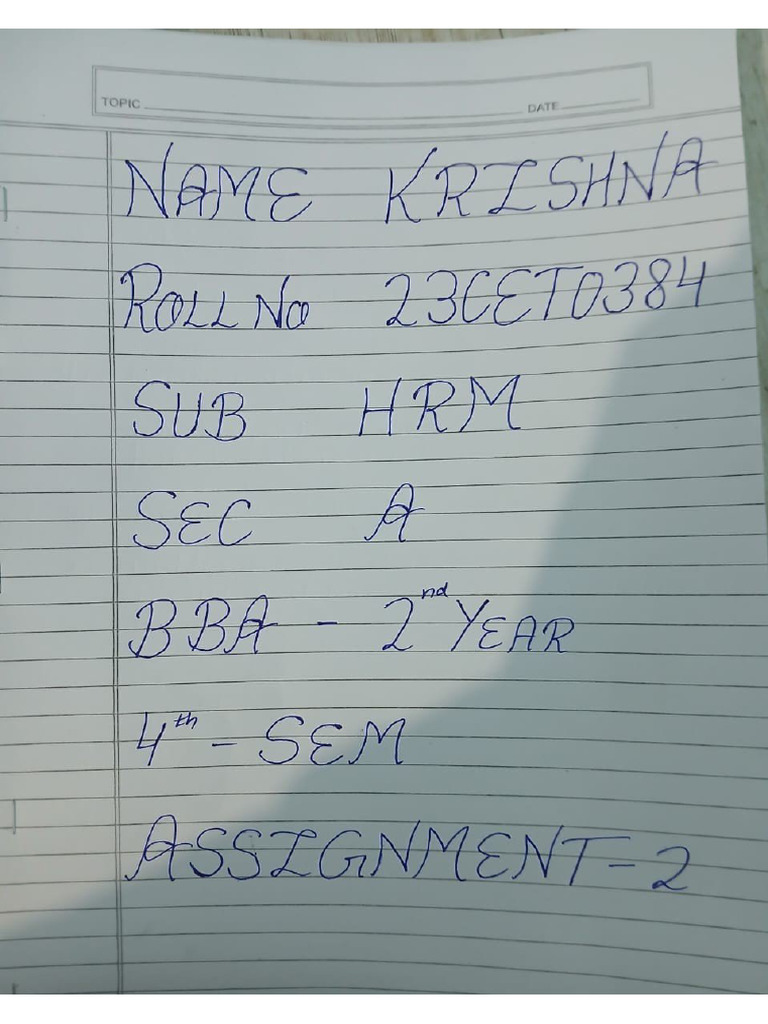 TOPIC DATE
NAME KRISHNA
ROLL NO 23CET0384
SUB HRM
SEC A
BBA - 2nd YEAR
4th - SEM
ASSIGNMENT - 2